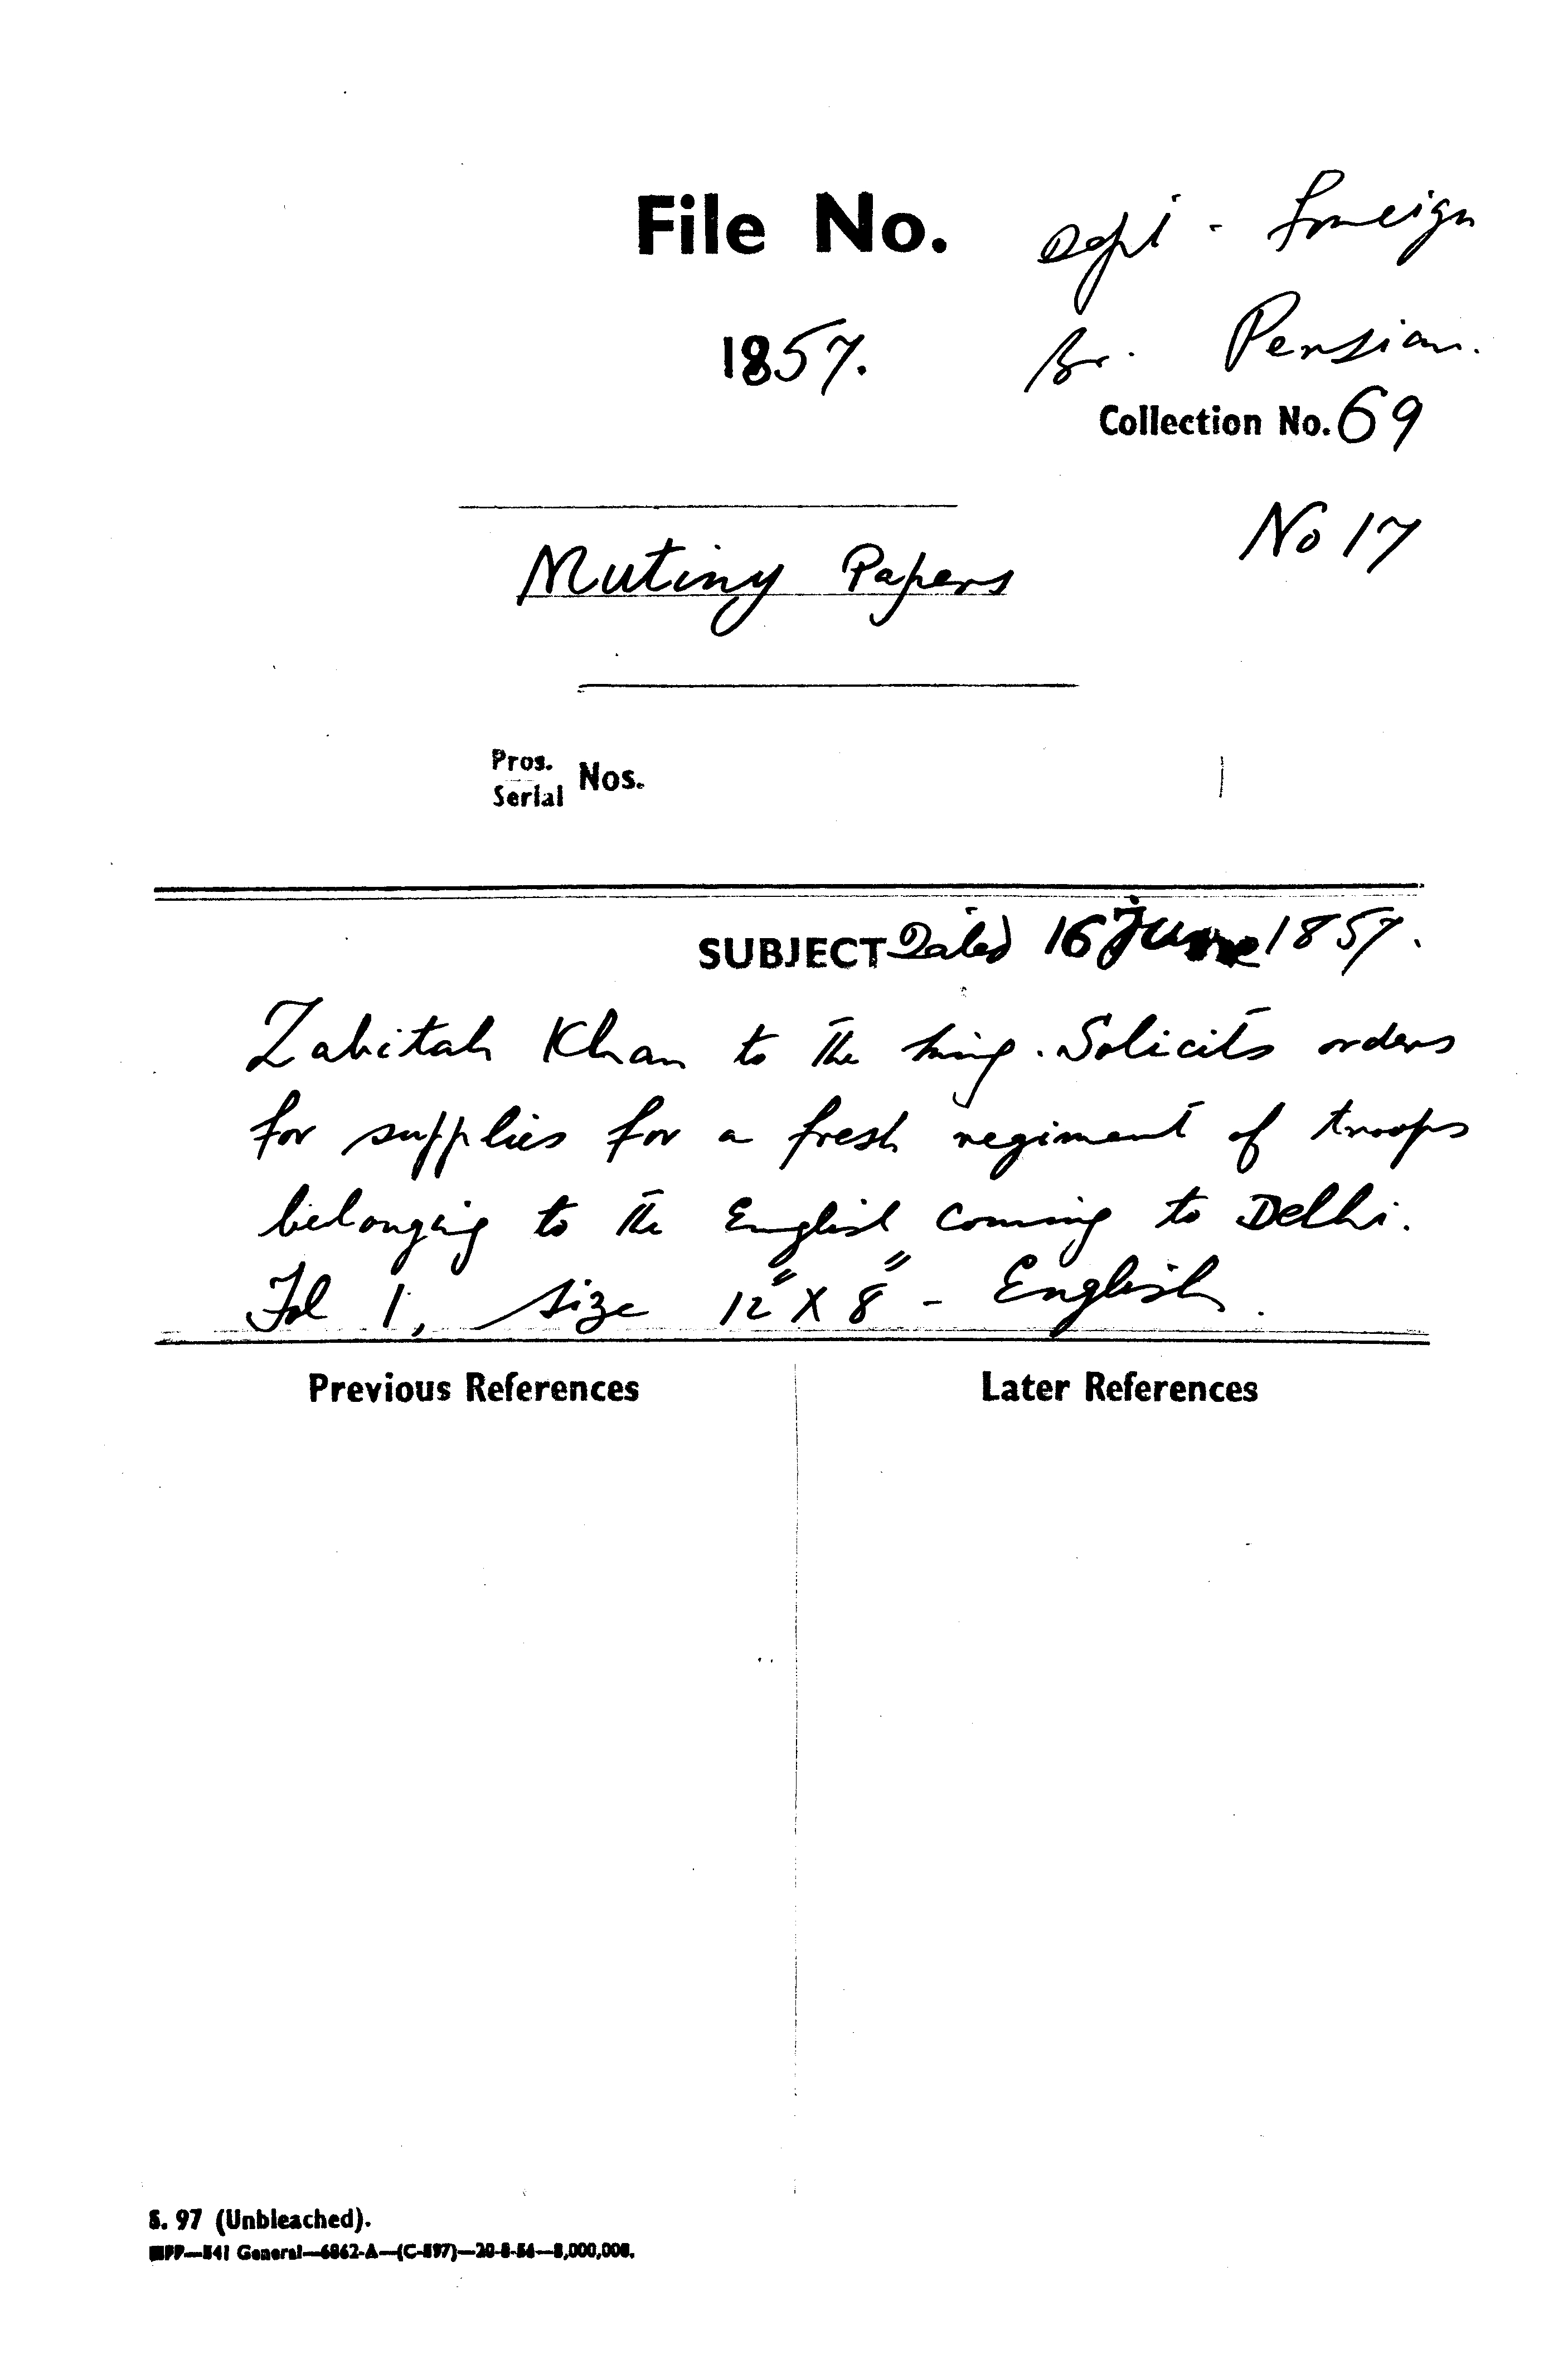 File No. Dept - Foreign
1857. Br. Persian.
Collection No. 69
No 17
Mutiny Papers
Pros.
Serial Nos.
SUBJECT Dated 16 June 1857.
Zabitah Khan to the King. Solicits orders
for supplies for a fresh regiment of troops
belonging to the English coming to Delhi.
Fol 1, size 12" X 8" - English.
Previous References Later References
S. 97 (Unbleached).
General—6862-A